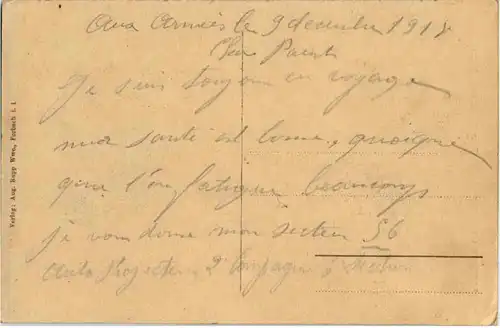 Aux Armées le 9 decembre 1918
Je suis toujours en voyage
ma santé est bonne, quoique
que l'on fatigue beaucoup
je vous donne mon secteur 56
Auto Projecteur 2 Compagnie
Verlag: Aug. Rupp Wwe., Forbach i. L.